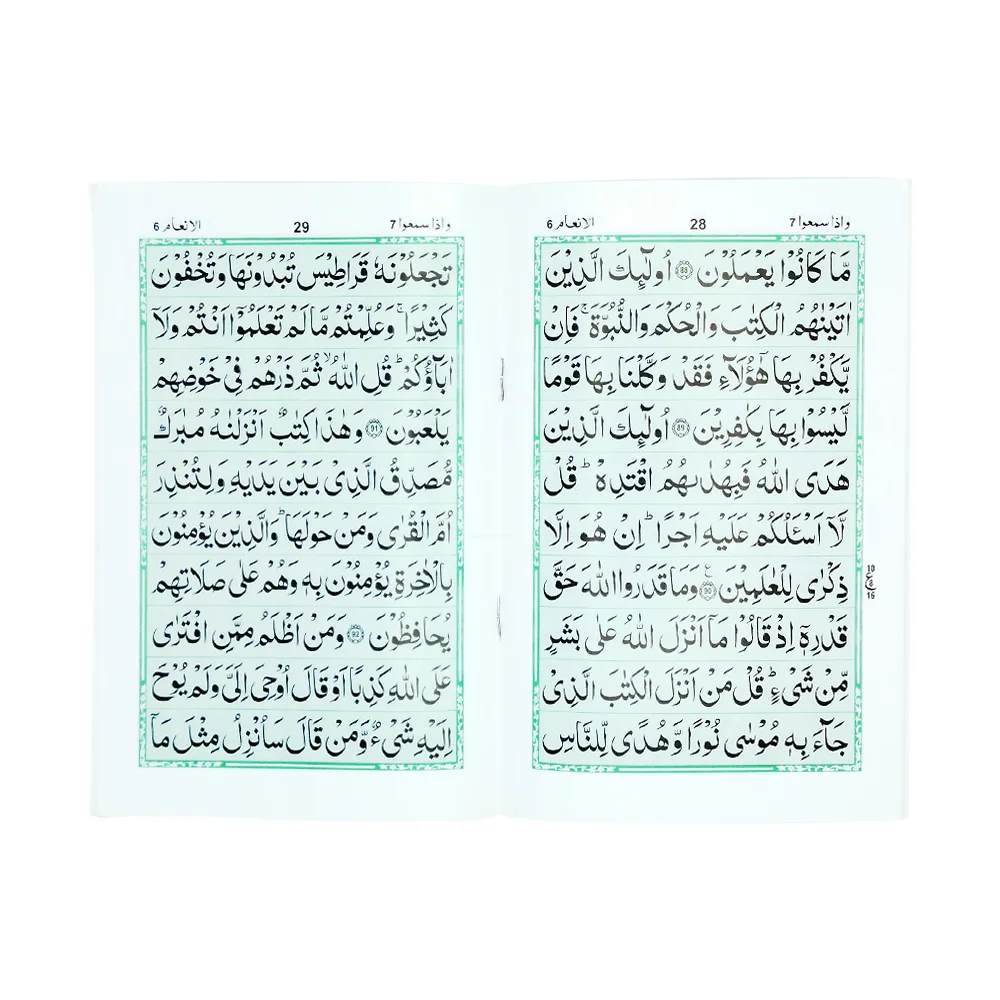 واذا سمعوا 7 28 الانعام 6
مَّا كَانُوْا يَعْمَلُوْنَ ﴿88﴾ اُولٰٓئِكَ الَّذِيْنَ
اٰتَيْنٰهُمُ الْكِتٰبَ وَالْحُكْمَ وَالنُّبُوَّةَ ۚ فَاِنْ
يَّكْفُرْ بِهَا هٰٓؤُلَآءِ فَقَدْ وَكَّلْنَا بِهَا قَوْمًا
لَّيْسُوْا بِهَا بِكٰفِرِيْنَ ﴿89﴾ اُولٰٓئِكَ الَّذِيْنَ
هَدَى اللّٰهُ فَبِهُدٰىهُمُ اقْتَدِهْ ؕ قُلْ
لَّاۤ اَسْـَٔلُكُمْ عَلَيْهِ اَجْرًا ؕ اِنْ هُوَ اِلَّا
ذِكْرٰى لِلْعٰلَمِيْنَ ﴿90﴾ ع وَمَا قَدَرُوا اللّٰهَ حَقَّ
10
ع
8
16
قَدْرِهٖۤ اِذْ قَالُوْا مَاۤ اَنْزَلَ اللّٰهُ عَلٰى بَشَرٍ
مِّنْ شَيْءٍ ؕ قُلْ مَنْ اَنْزَلَ الْكِتٰبَ الَّذِيْ
جَآءَ بِهٖ مُوْسٰى نُوْرًا وَّهُدًى لِّلنَّاسِ
واذا سمعوا 7 29 الانعام 6
تَجْعَلُوْنَهٗ قَرَاطِيْسَ تُبْدُوْنَهَا وَتُخْفُوْنَ
كَثِيْرًا ۚ وَعُلِّمْتُمْ مَّا لَمْ تَعْلَمُوْۤا اَنْتُمْ وَلَاۤ
اٰبَآؤُكُمْ ؕ قُلِ اللّٰهُ ۙ ثُمَّ ذَرْهُمْ فِيْ خَوْضِهِمْ
يَلْعَبُوْنَ ﴿91﴾ وَهٰذَا كِتٰبٌ اَنْزَلْنٰهُ مُبٰرَكٌ
مُّصَدِّقُ الَّذِيْ بَيْنَ يَدَيْهِ وَلِتُنْذِرَ
اُمَّ الْقُرٰى وَمَنْ حَوْلَهَا ؕ وَالَّذِيْنَ يُؤْمِنُوْنَ
بِالْاٰخِرَةِ يُؤْمِنُوْنَ بِهٖ وَهُمْ عَلٰى صَلَاتِهِمْ
يُحَافِظُوْنَ ﴿92﴾ وَمَنْ اَظْلَمُ مِمَّنِ افْتَرٰى
عَلَى اللّٰهِ كَذِبًا اَوْ قَالَ اُوْحِيَ اِلَيَّ وَلَمْ يُوْحَ
اِلَيْهِ شَيْءٌ وَّمَنْ قَالَ سَاُنْزِلُ مِثْلَ مَاۤ